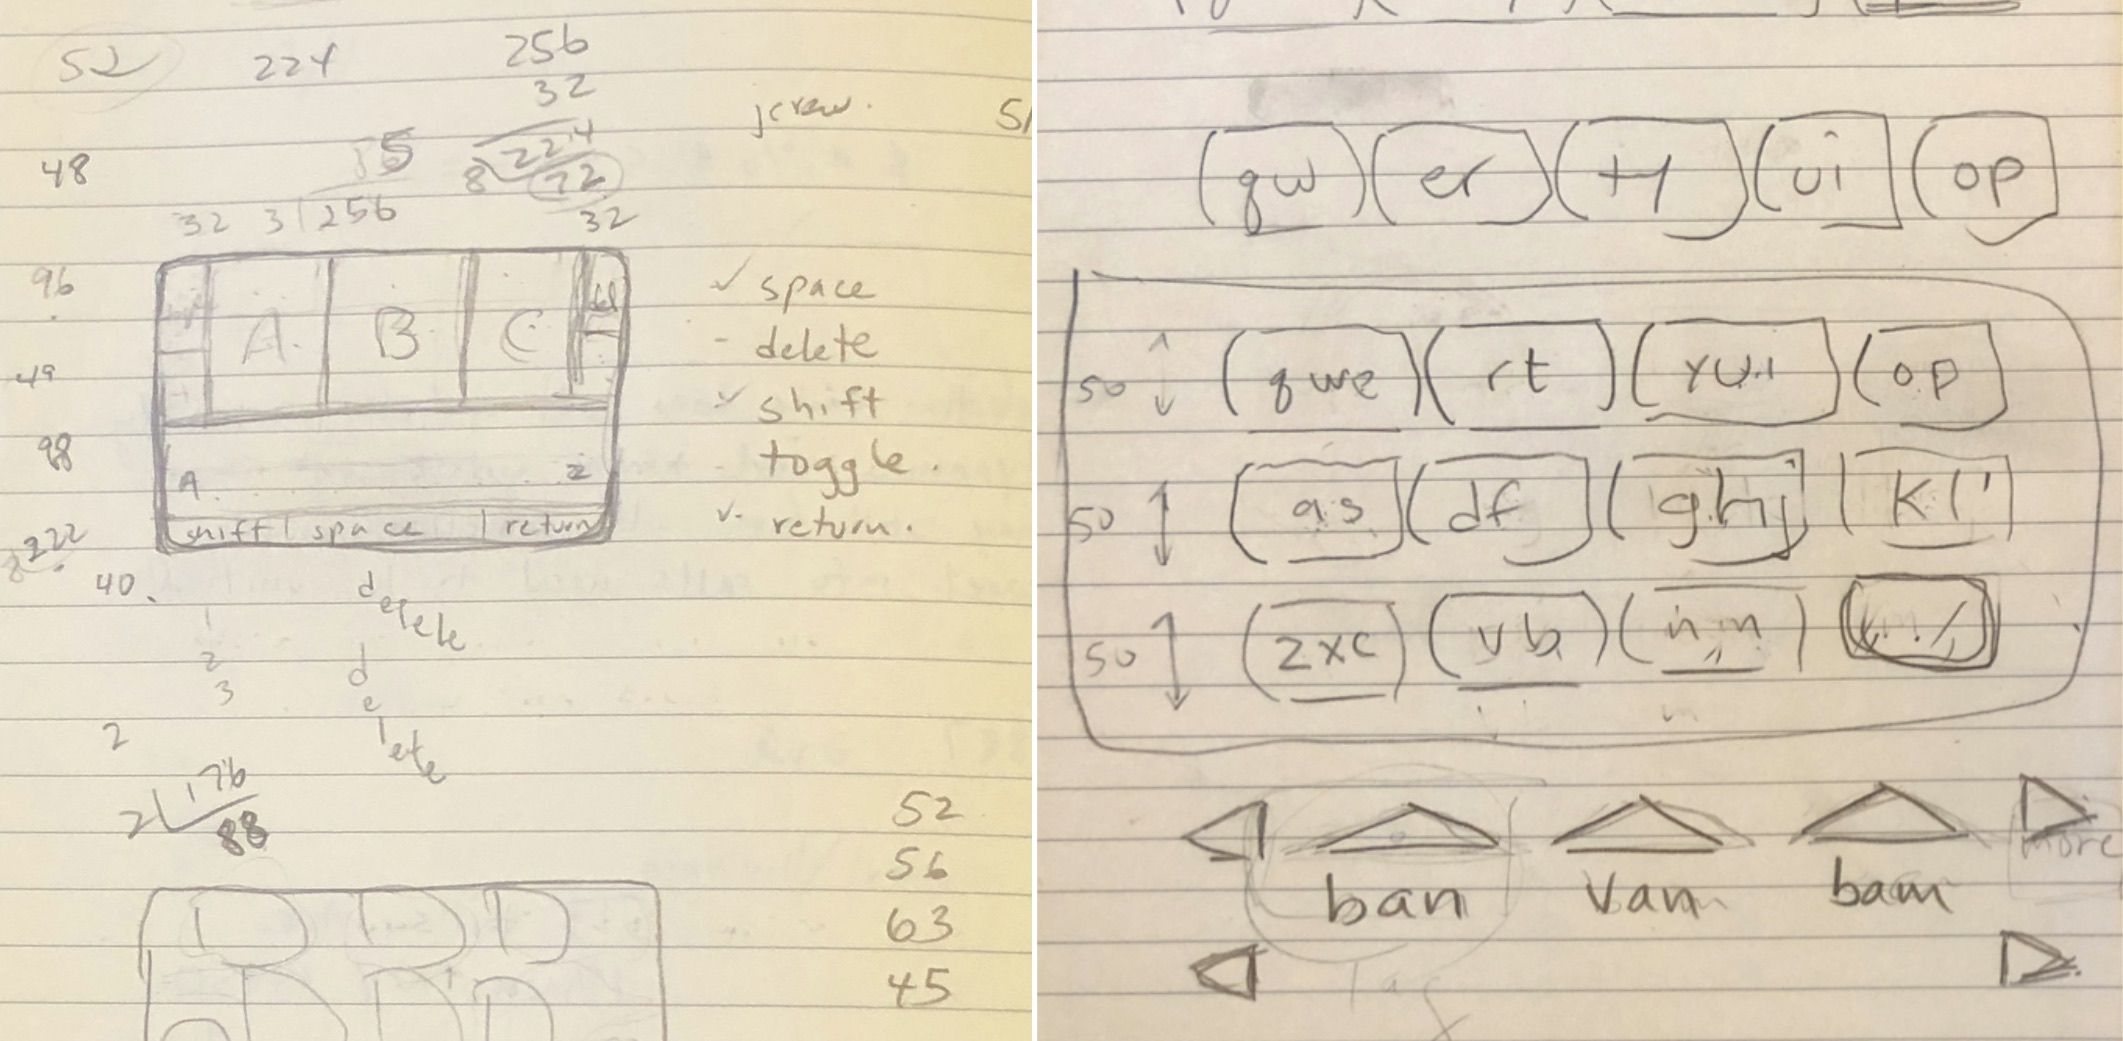 52 224 256
32
jcrew. 51
48 85 8 224
72
32 3 256 32
96
A B C del
✓ space
- delete
49
✓ shift
98
- toggle.
A Z
✓ return.
shift space return
8 222
40.
delete
1
2
3
delete
2
2 176
88
52
56
63
45
qw er ty ui op
50 qwe rt yui op
50 as df ghj kl'
50 zxc vb n,m
more
ban van bam